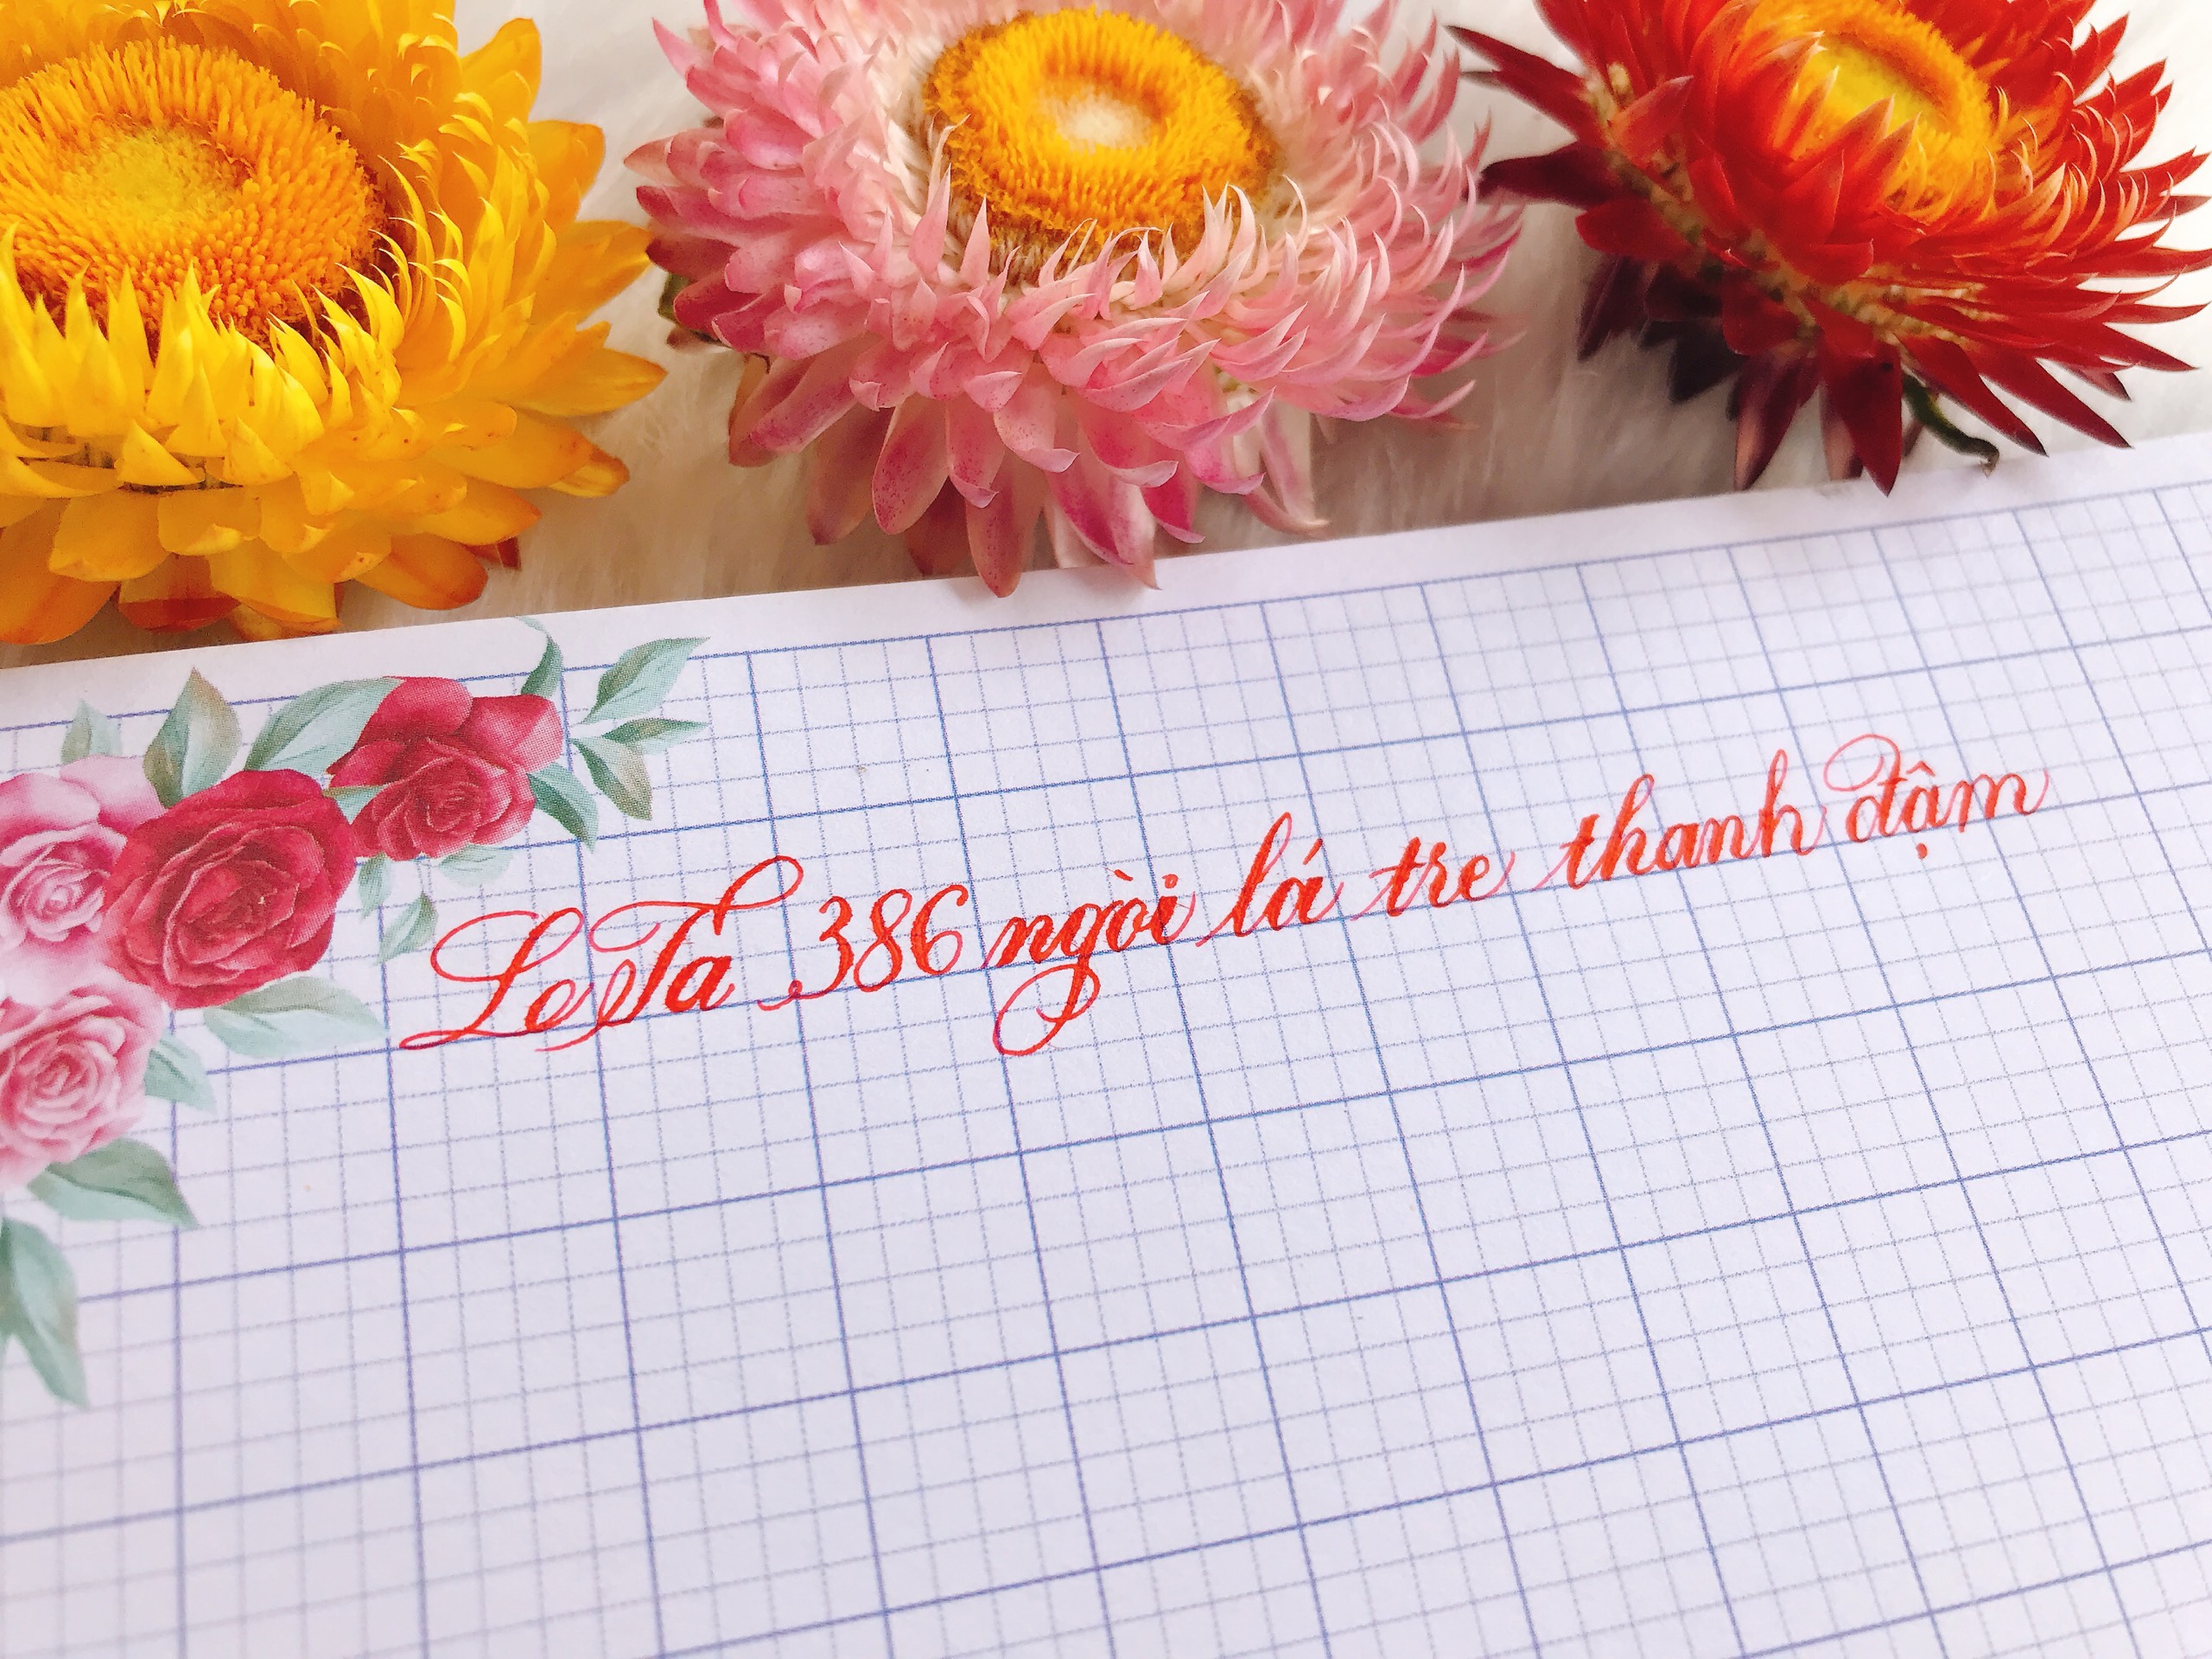 LeTa 386 ngòi lá tre thanh đậm